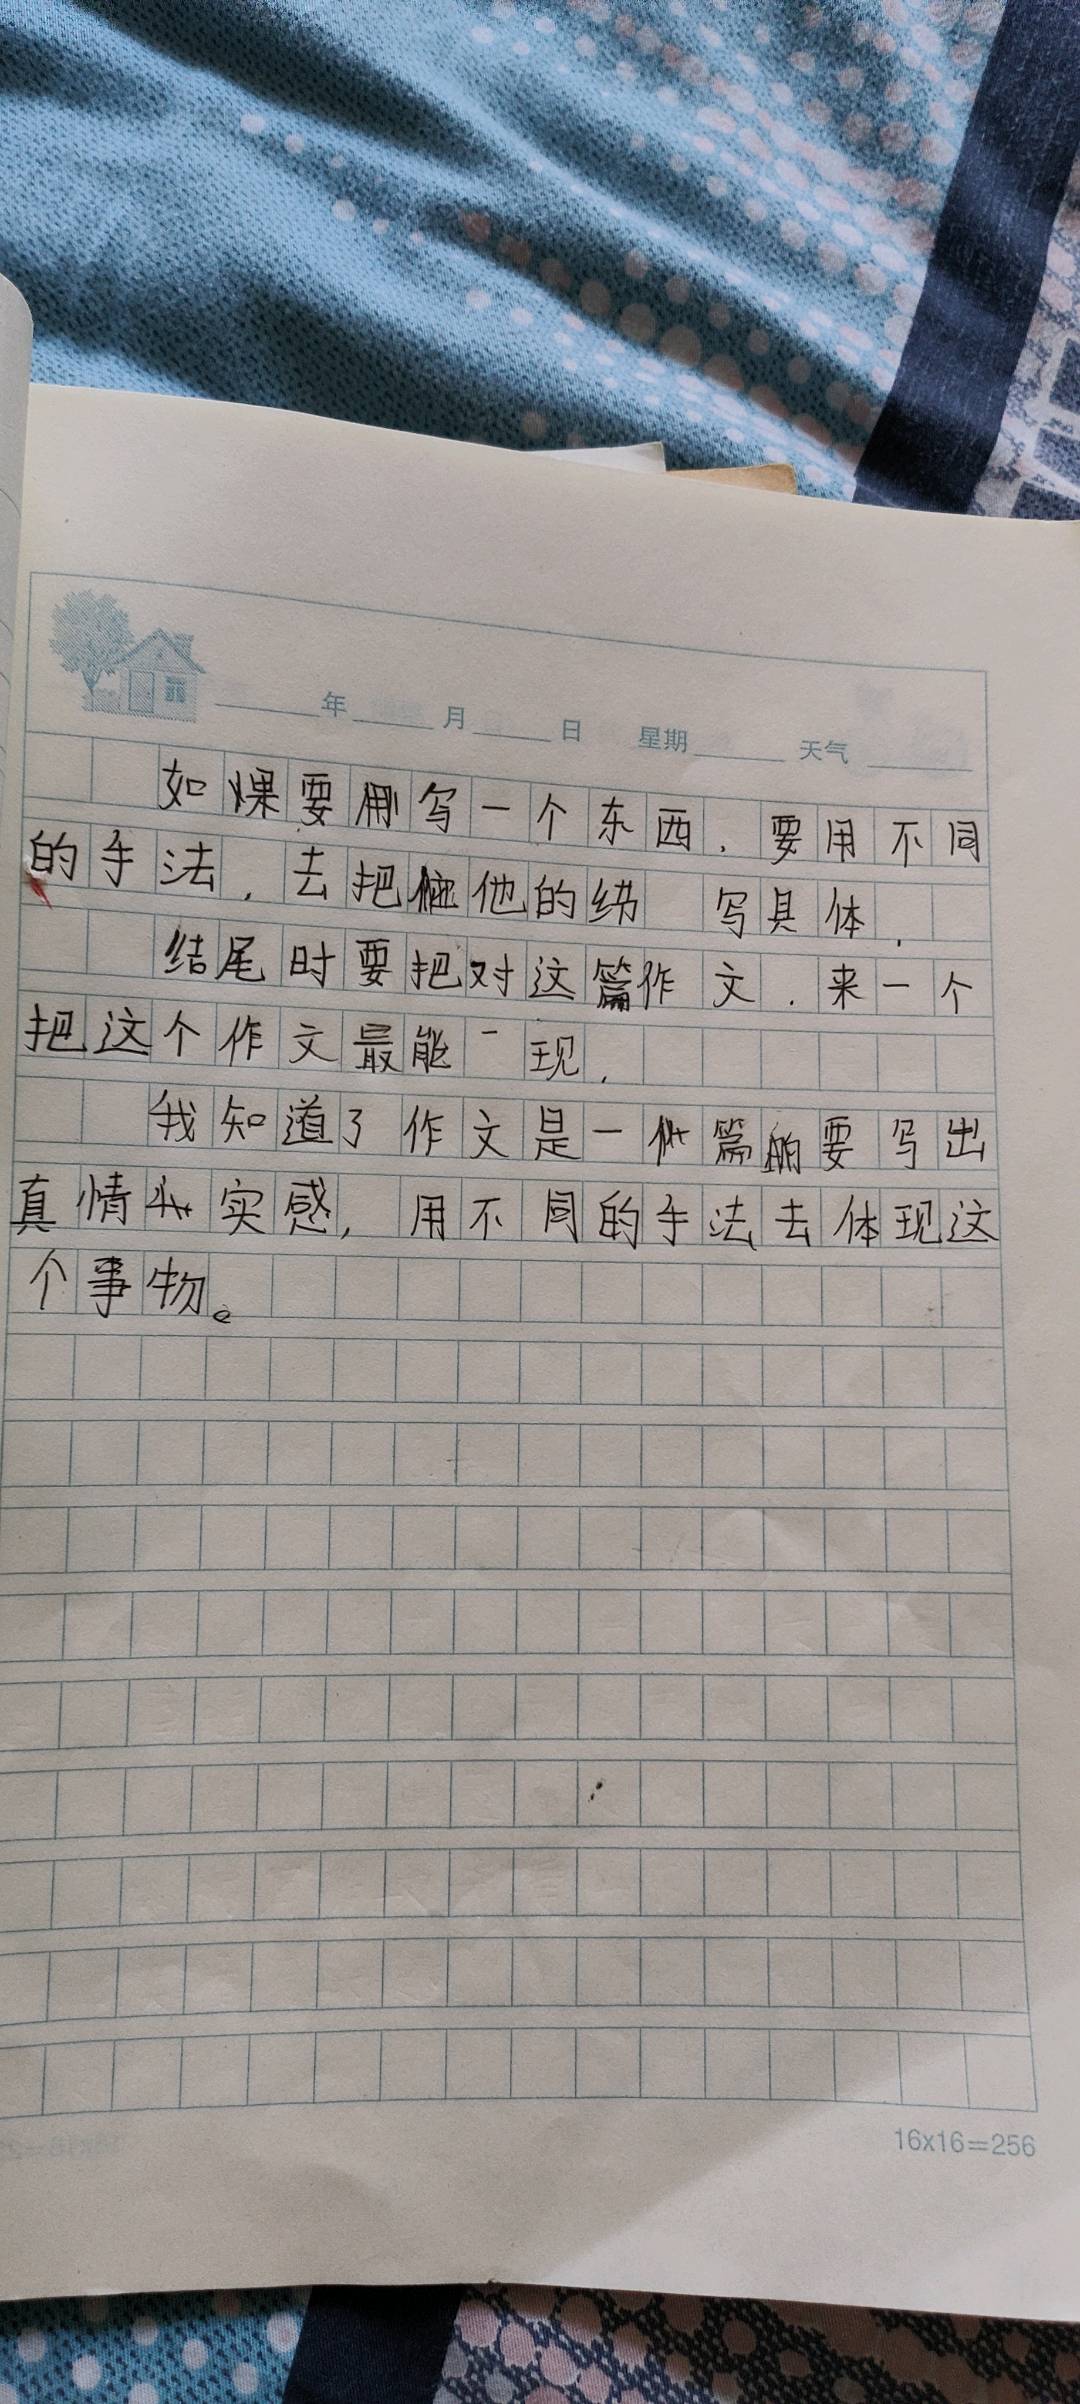 年 月 日 星期 天气
如果要用写一个东西，要用不同
的手法，去把他的 写具体，
结尾时要把对这篇作文，来一个
把这个作文最能一 现，
我知道了作文是一 篇的要写出
真情 实感，用不同的手法去体现这
个事物。
16x16=256